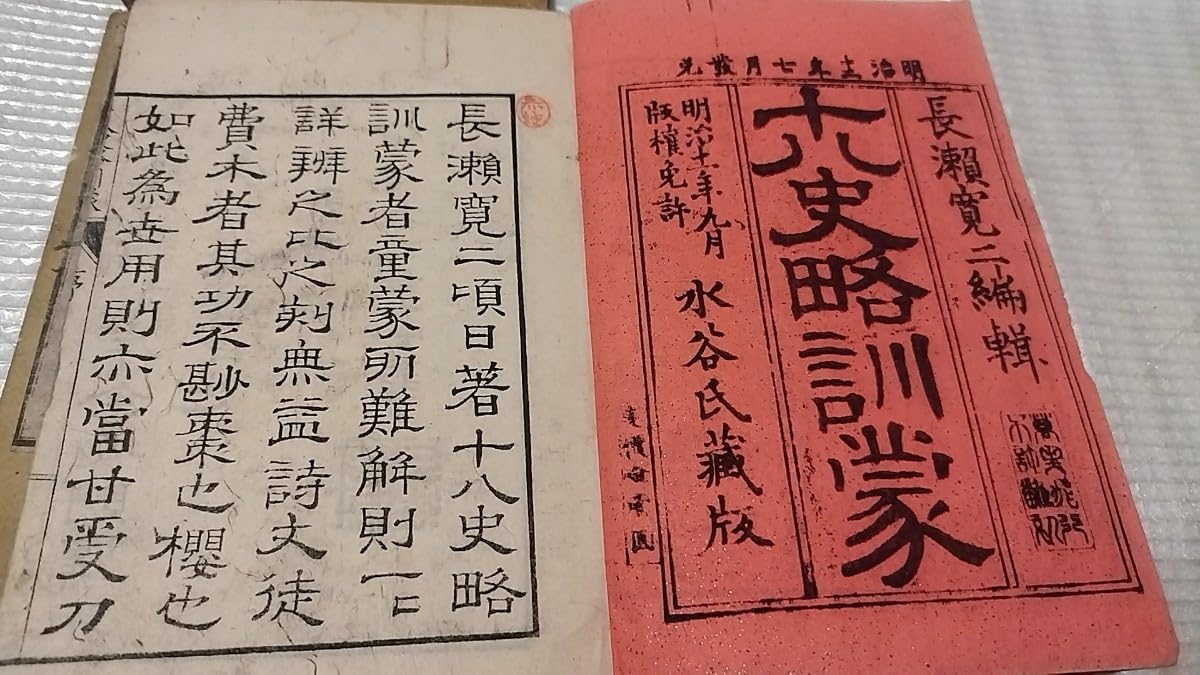 明治十二年七月發兌
長瀨寛二編輯
十八史略訓蒙
明治十一年九月
版權免許
水谷氏藏版
長瀨寛二頃日著十八史略
訓蒙者童蒙所難解則一〻
詳辨之比之刻無益詩文徒
費木者其功不尠棗也櫻也
如此爲世用則亦當甘受刀
序